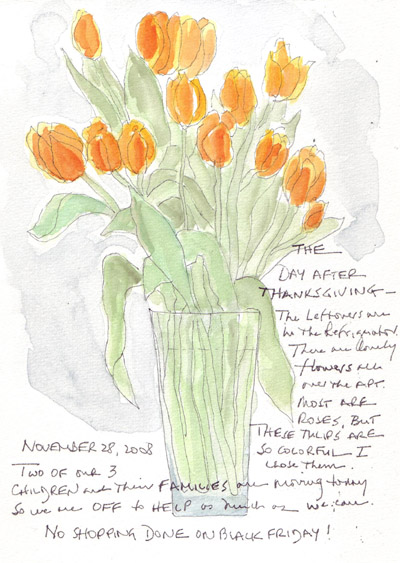 THE
DAY AFTER
THANKSGIVING—
The Leftovers are
in the Refrigerator.
There are lovely
flowers all
over the APT.
MOST ARE
ROSES, BUT
THESE TULIPS ARE
SO COLORFUL I
chose them.
NOVEMBER 28, 2008
TWO OF OUR 3
CHILDREN and their FAMILIES are moving today
So we are OFF to HELP as much as we can.
NO SHOPPING DONE ON BLACK FRIDAY!